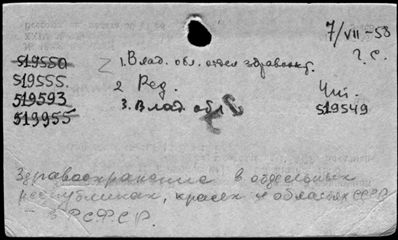 7/VII-58
г. С.
519550
519555.
519593
519955
1. Влад. обл. отдел здравоохр.
2 Ред.
3. Влад обл
Чит.
519549
Здравоохранение в отдельных
республиках, краях и областях СССР
- в РСФСР.